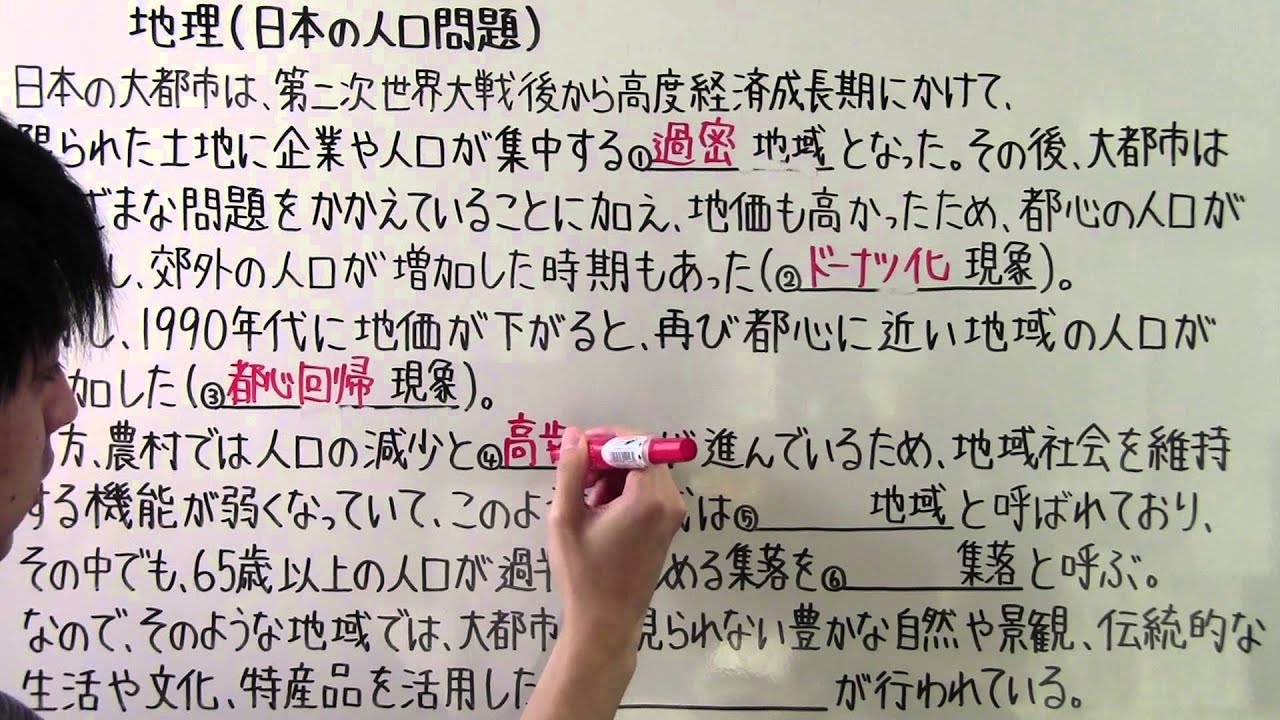 地理(日本の人口問題)
日本の大都市は、第二次世界大戦後から高度経済成長期にかけて、
られた土地に企業や人口が集中する①過密 地域となった。その後、大都市は
ざまな問題をかかえていることに加え、地価も高かったため、都心の人口が
し、郊外の人口が増加した時期もあった(②ドーナツ化 現象)。
し、1990年代に地価が下がると、再び都心に近い地域の人口が
加した(③都心回帰 現象)。
方、農村では人口の減少と④高 が進んでいるため、地域社会を維持
する機能が弱くなっていて、このよ は⑤ 地域と呼ばれており、
その中でも、65歳以上の人口が過 める集落を⑥ 集落と呼ぶ。
なので、そのような地域では、大都市 見られない豊かな自然や景観、伝統的な
生活や文化、特産品を活用した が行われている。